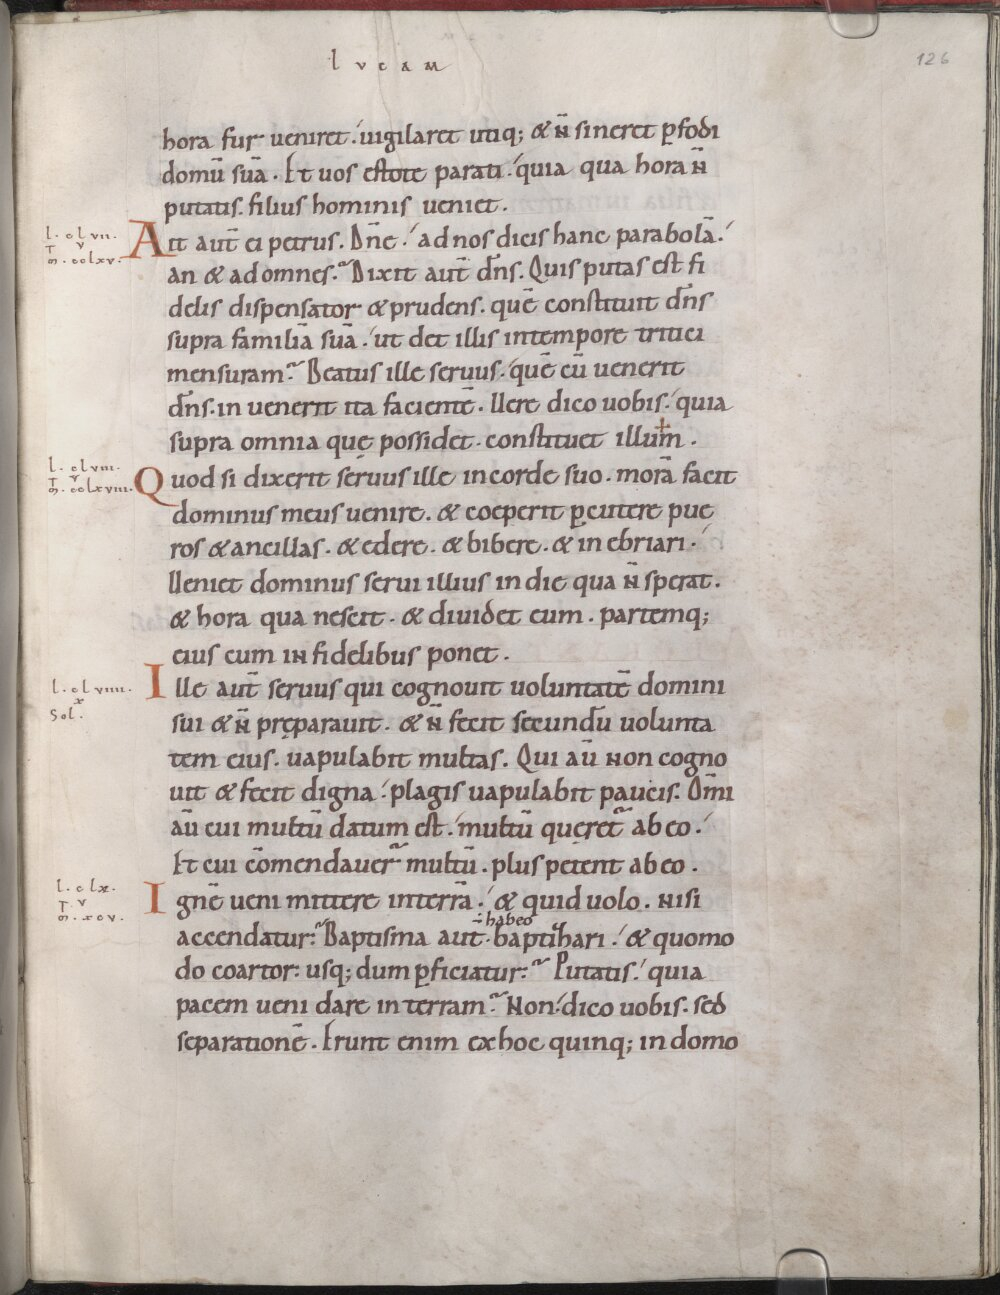 lvcam
126
hora fur ueniret. uigilaret utiq; & n̄ sineret ꝑfodi
domū suā. Et uos estote parati. quia qua hora n̄
putatis. filius hominis ueniet.
l. clvii.
v
m. cclxv.
Ait aut̄ ei petrus. Dn̄e. ad nos dicis hanc parabolā.
an & ad omnes. Dixit aut̄ dn̄s. Quis putas est fi
delis dispensator & prudens. quē constituit dn̄s
supra familiā suā. ut det illis intempore tritici
mensuram. Beatus ille seruus. quē cū uenerit
dn̄s. in uenerit ita facientē. Uere dico uobis. quia
supra omnia quę possidet. constituet illum.
l. clviii.
v
m. cclxviii.
Quod si dixerit seruus ille incorde suo. morā facit
dominus meus uenire. & coeperit ꝑcutere pue
ros & ancillas. & edere. & bibere. & in ebriari.
Ueniet dominus serui illius in die qua n̄ sperat.
& hora qua nescit. & diuidet eum. partemq;
eius cum in fidelibus ponet.
l. clviiii.
x
Sol.
Ille aut̄ seruus qui cognouit uoluntatē domini
sui & n̄ pręparauit. & n̄ fecit secundū uolunta
tem eius. uapulabit multas. Qui aū non cogno
uit & fecit digna. plagis uapulabit paucis. Om̄i
aū cui multū datum est. multū queret̄ ab eo.
Et cui cōmendauer̄ multū. plus petent ab eo.
l. clx.
v
m. xcv.
Ignē ueni mittere interrā. & quid uolo. nisi
habeo
accendatur. Baptisma aut̄. baptizari. & quomo
do coartor. usq; dum ꝑficiatur. Putatis. quia
pacem ueni dare in terram. Non. dico uobis. sed
separationē. Erunt enim ex hoc quinq; in domo